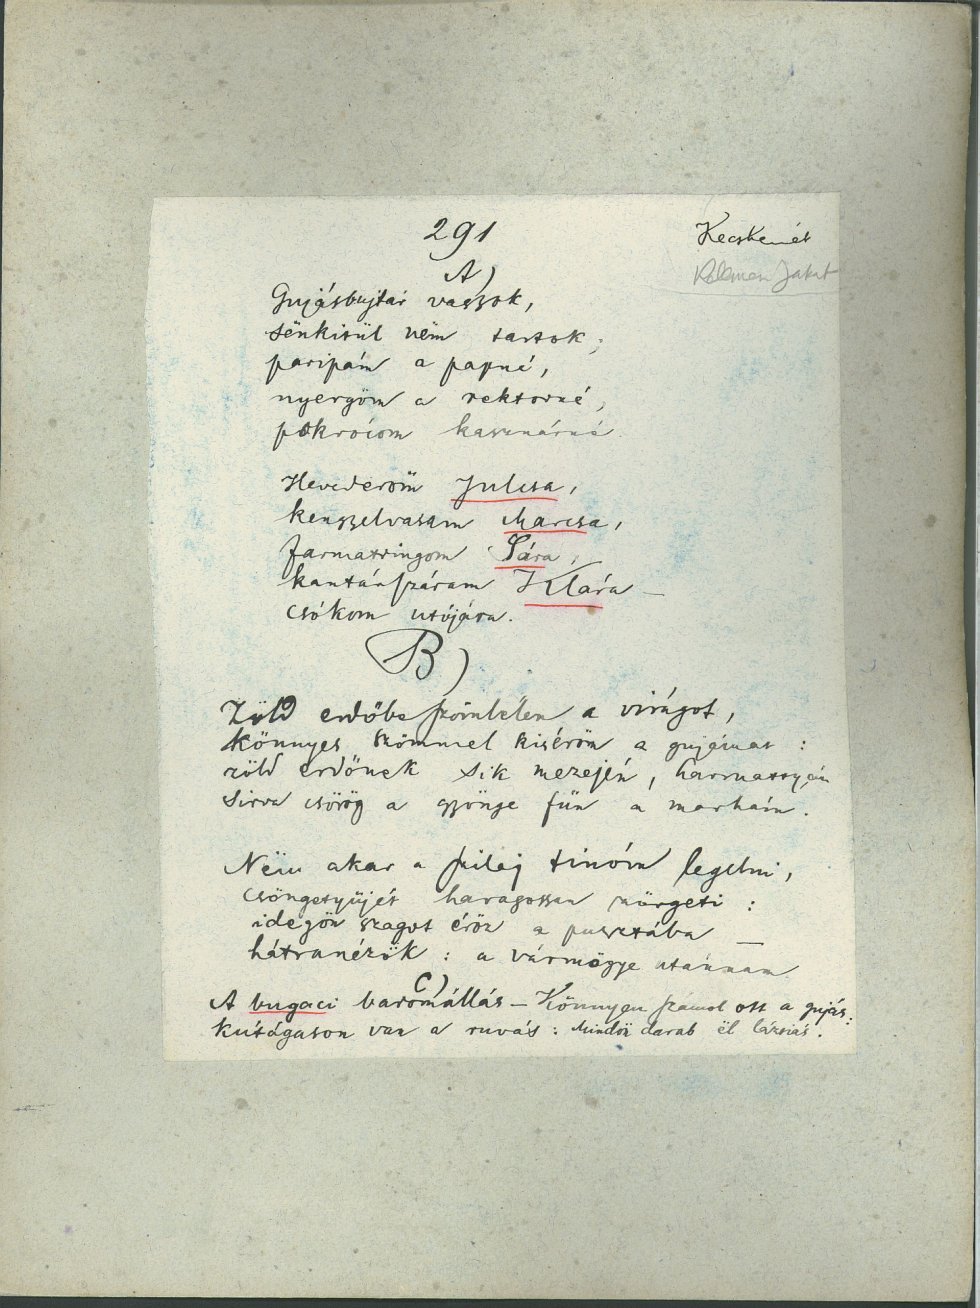 291
Kecskemét
Kelemen Jakab
A)
Gujásbujtár vagyok,
sënkitül nëm tartok;
paripám a papné,
nyergöm a rektorné,
pokrócom kasznárné.
Hevederöm Julcsa,
kengyelvasam Marcsa,
farmatringom Sára,
kantárszáram Klára —
csókom utójára.
B)
Zöld erdőbe szöntelen a virágot,
Könnyes szömmel kisérön a gujámat :
zöld erdőnek sik mezején, harmattyán
sirva csörög a gyönge fün a marhám.
Nëm akar a szilaj tinóm legelni,
csöngetyüjét haragossan pörgeti :
idegön szagot éröz a pusztába —
hátranézök : a vármögye utánnam
C)
A bugaci baromállás – Könnyen számol ott a gujás :
kútágason van a rovás : Mindön darab él lázsiás.